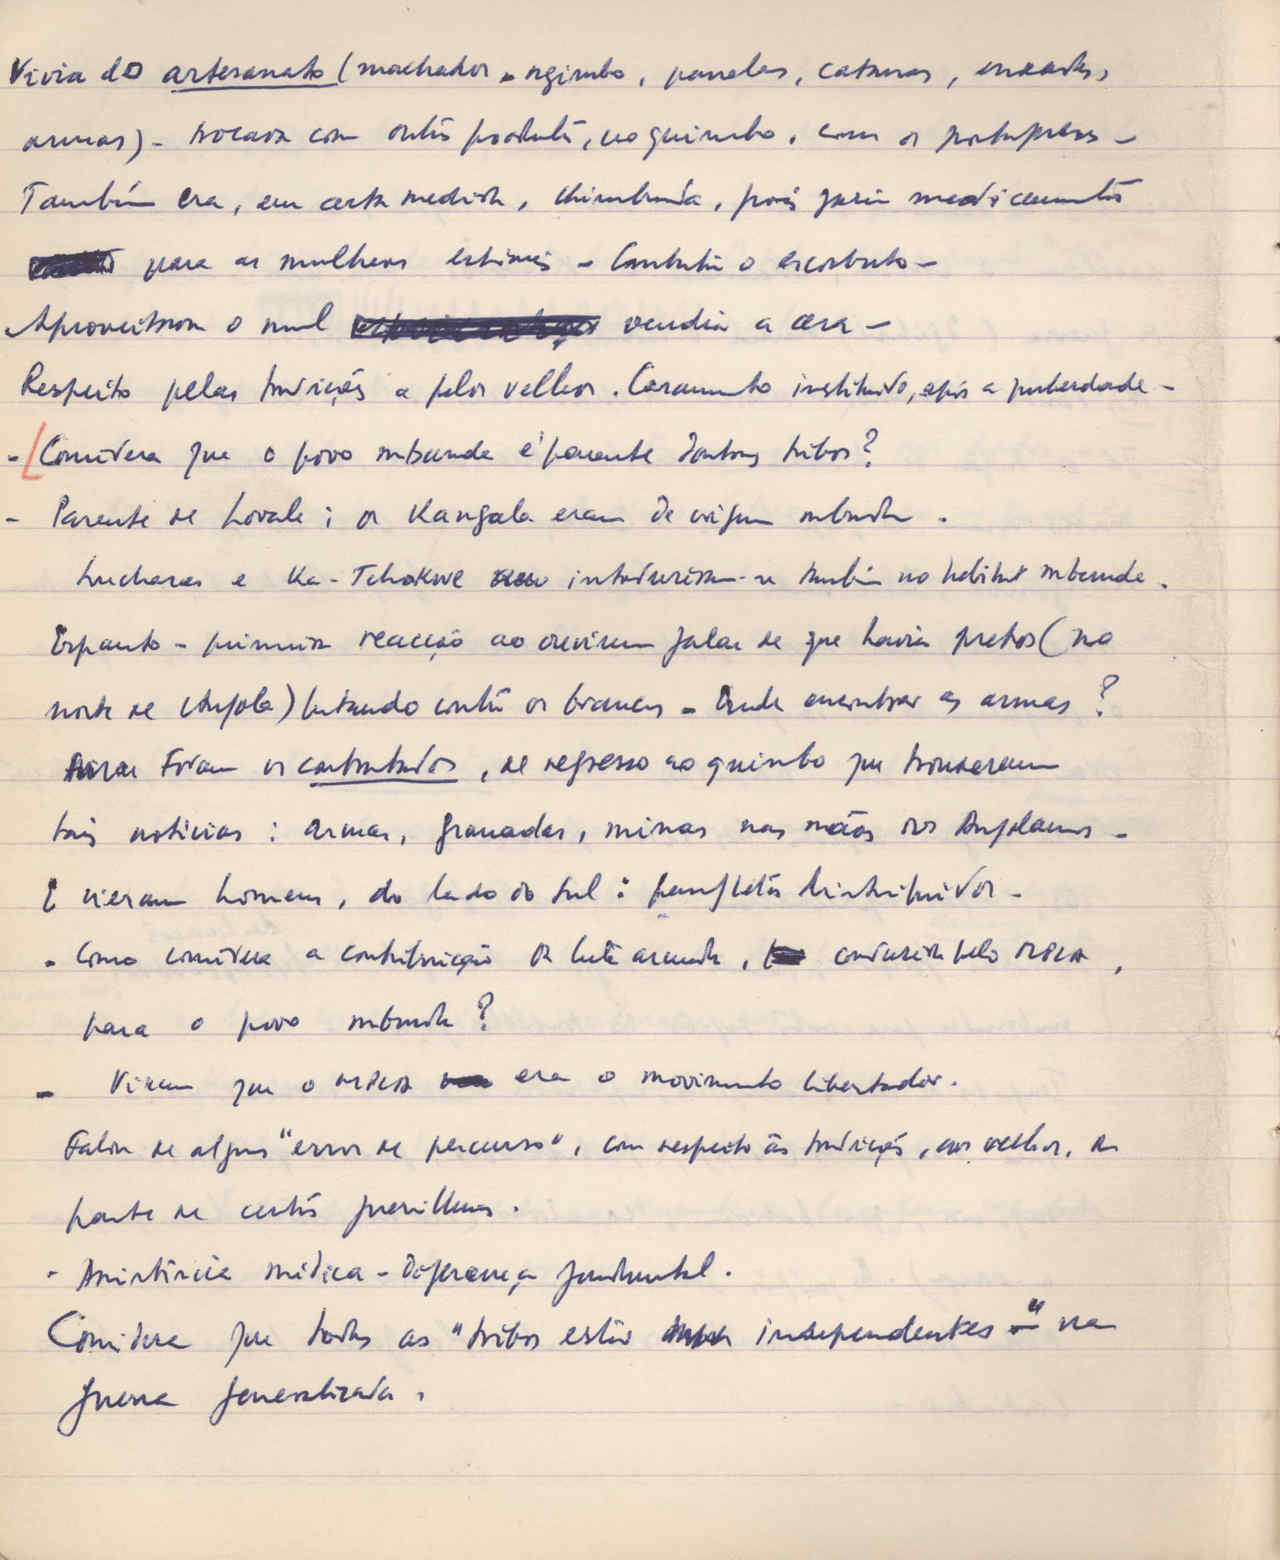 Vivia do artesanato (machados - ngimbo, panelas, catanas, enxadas,
armas) - trocava com outros produtos, no quimbo, com os portugueses -
Também era, em certa medida, chimbanda, pois fazia medicamentos
para as mulheres estéreis - Combatia o escorbuto -
Aproveitava o mel vendia a cera -
Respeito pelas tradições e pelos velhos. Casamento instituído, após a puberdade -
- [Considera que o povo mbunda é parente doutras tribos?
- Parente de Lovale; os Kangala eram de origem mbunda.
Luchazes e Ka-Tchokwe introduziram-se também no habitat mbunda.
Espanto - primeira reacção ao ouvirem falar de que havia pretos (no
norte de Angola) lutando contra os brancos - Onde encontrar as armas?
Foram os contratados, de regresso ao quimbo que trouxeram
tais notícias: armas, granadas, minas nas mãos dos Angolanos -
E vieram homens, do lado do sul: panfletos distribuídos -
- Como considera a contribuição da luta armada, conduzida pelo MPLA,
para o povo mbunda?
- Viram que o MPLA era o movimento libertador.
Falou de alguns "erros de percurso", com respeito às tradições, aos velhos, da
parte de certos guerrilheiros.
- Assistência médica - Diferença fundamental.
Considera que todas as "tribos estão independentes" na
guerra generalizada.